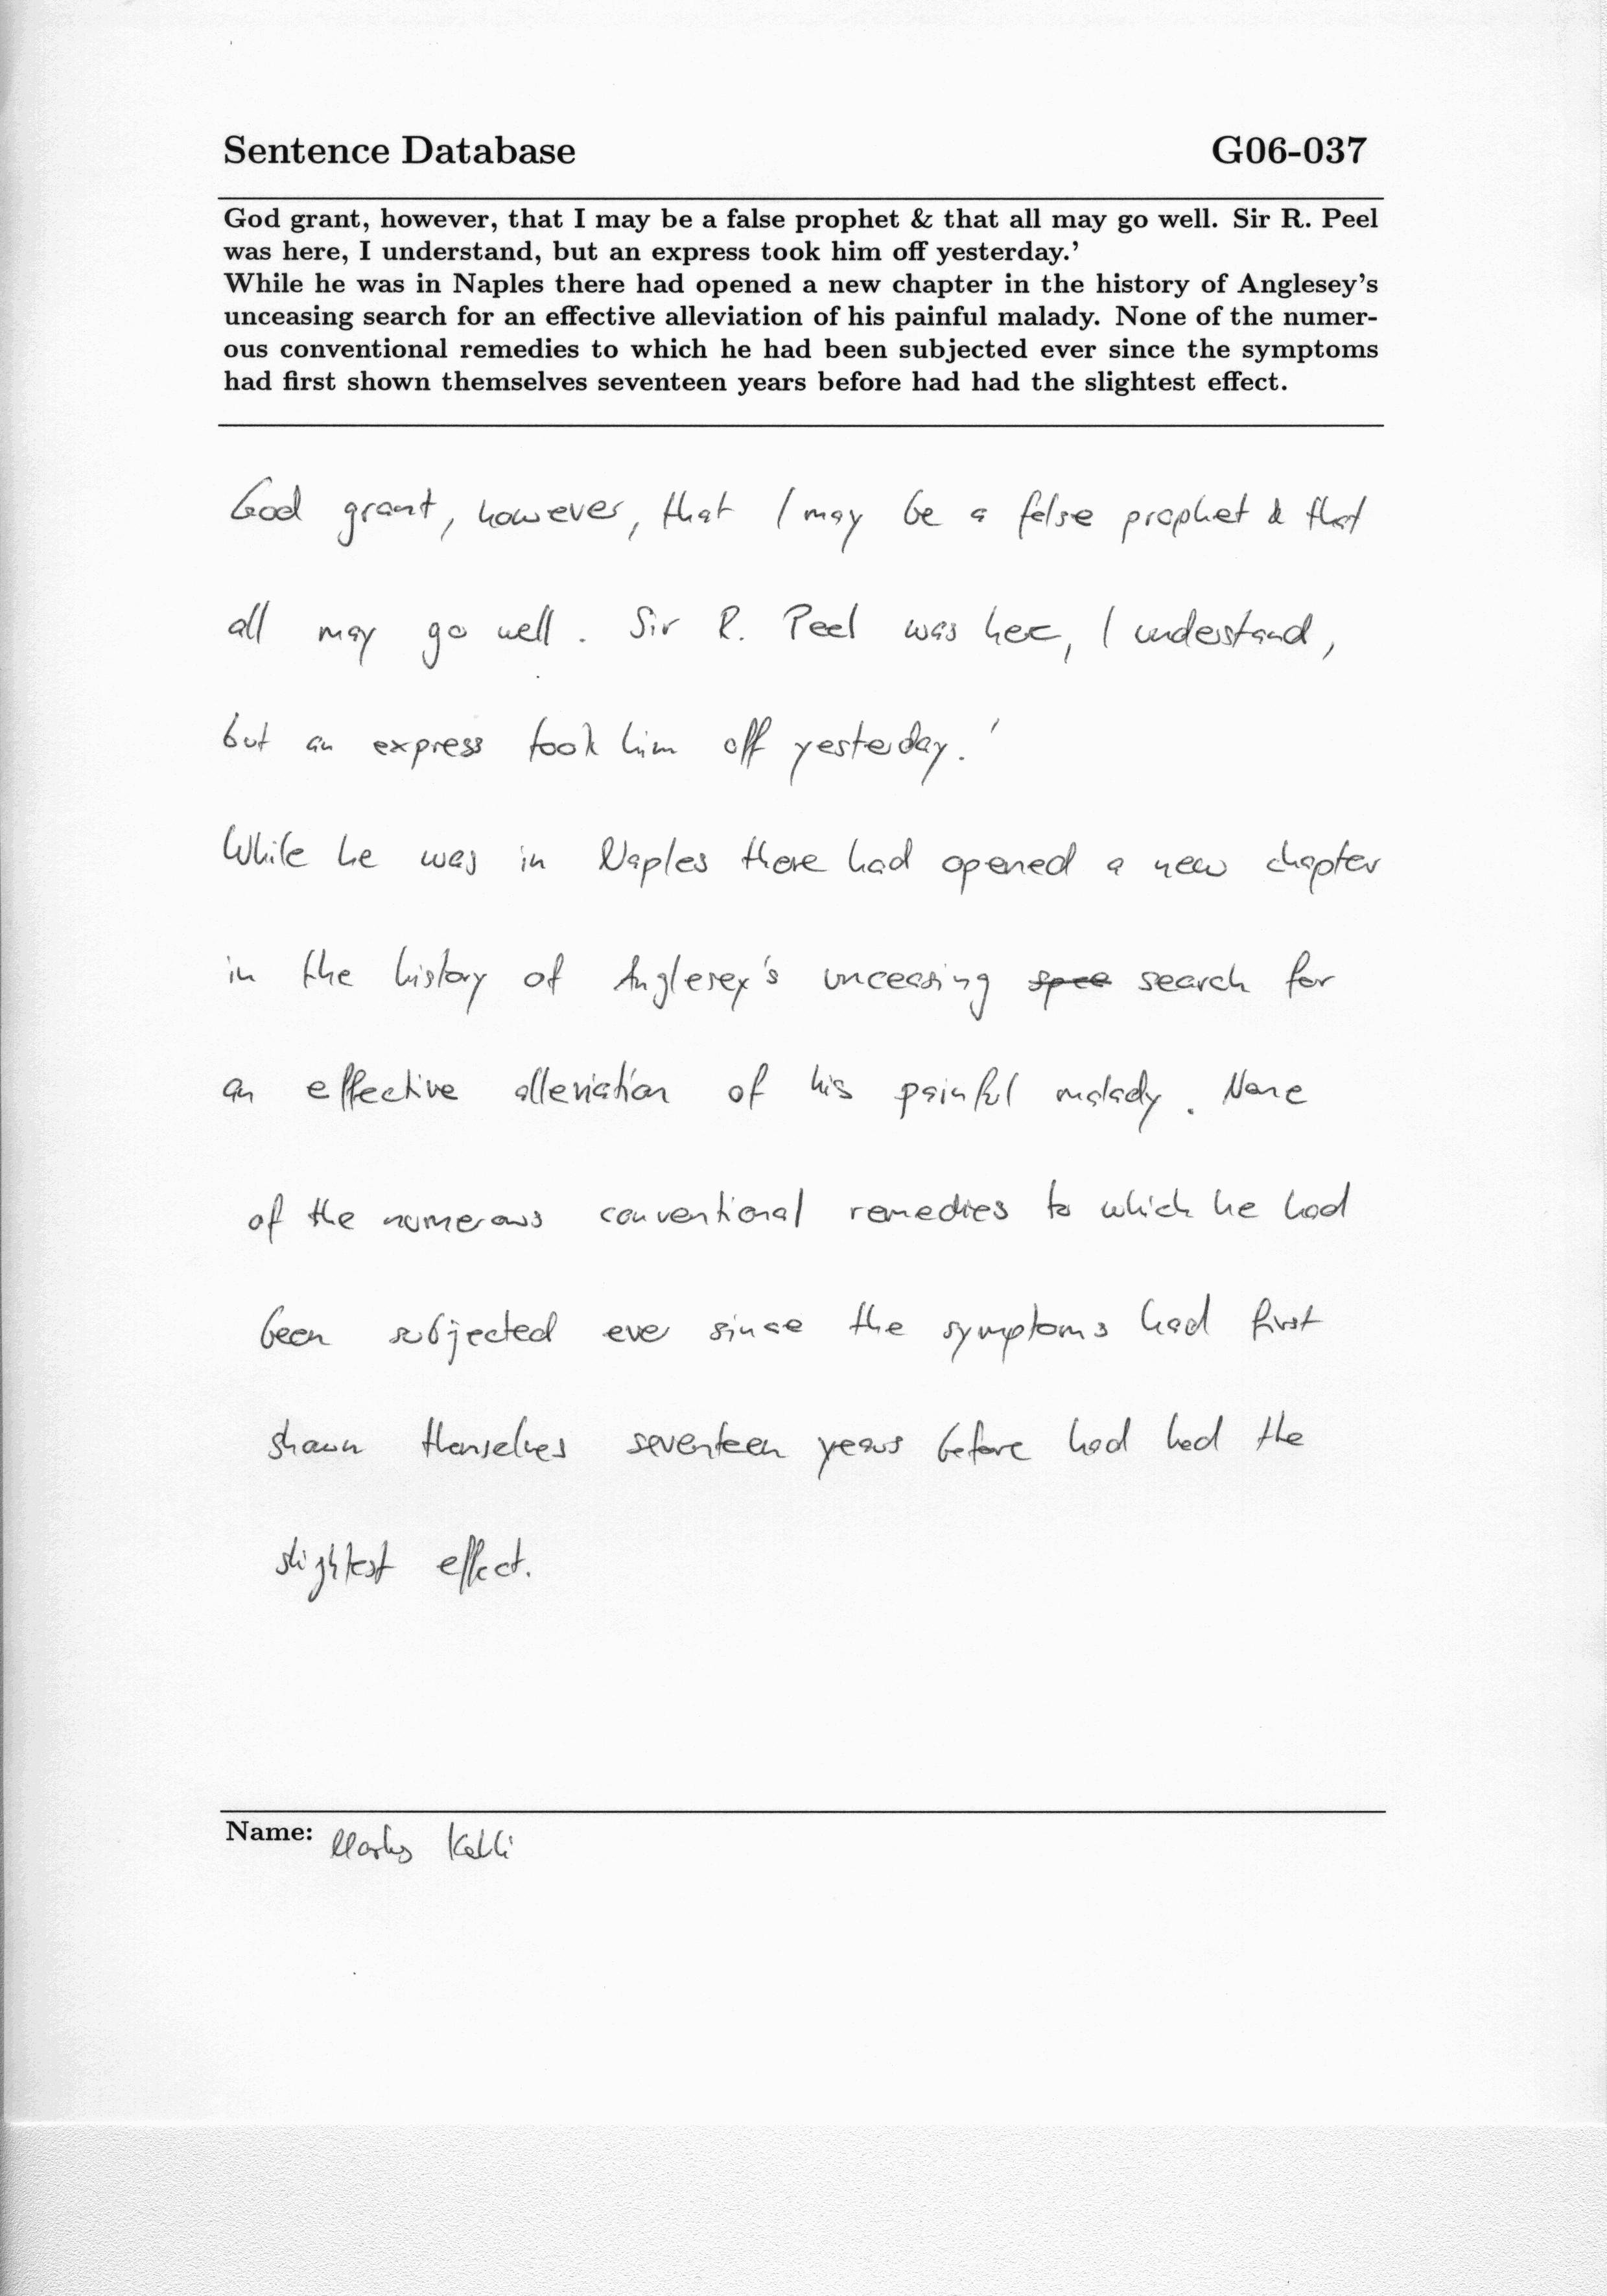 Sentence Database G06-037
God grant, however, that I may be a false prophet & that all may go well. Sir R. Peel
was here, I understand, but an express took him off yesterday.’
While he was in Naples there had opened a new chapter in the history of Anglesey’s
unceasing search for an effective alleviation of his painful malady. None of the numer-
ous conventional remedies to which he had been subjected ever since the symptoms
had first shown themselves seventeen years before had had the slightest effect.
God grant, however, that I may be a false prophet & that
all may go well. Sir R. Peel was here, I understand,
but an express took him off yesterday.'
While he was in Naples there had opened a new chapter
in the history of Anglesey's unceasing search for
an effective alleviation of his painful malady. None
of the numerous conventional remedies to which he had
been subjected ever since the symptoms had first
shown themselves seventeen years before had had the
slightest effect.
Name: